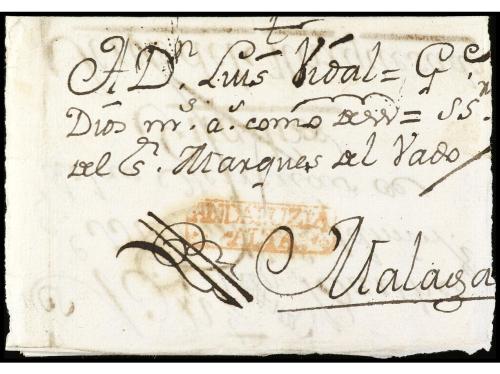 A Dn. Luis Vidal = G
Dios ms. as. como = SS
del Sr. Marques del Vado
ANDALUZIA
ALTA
Malaga